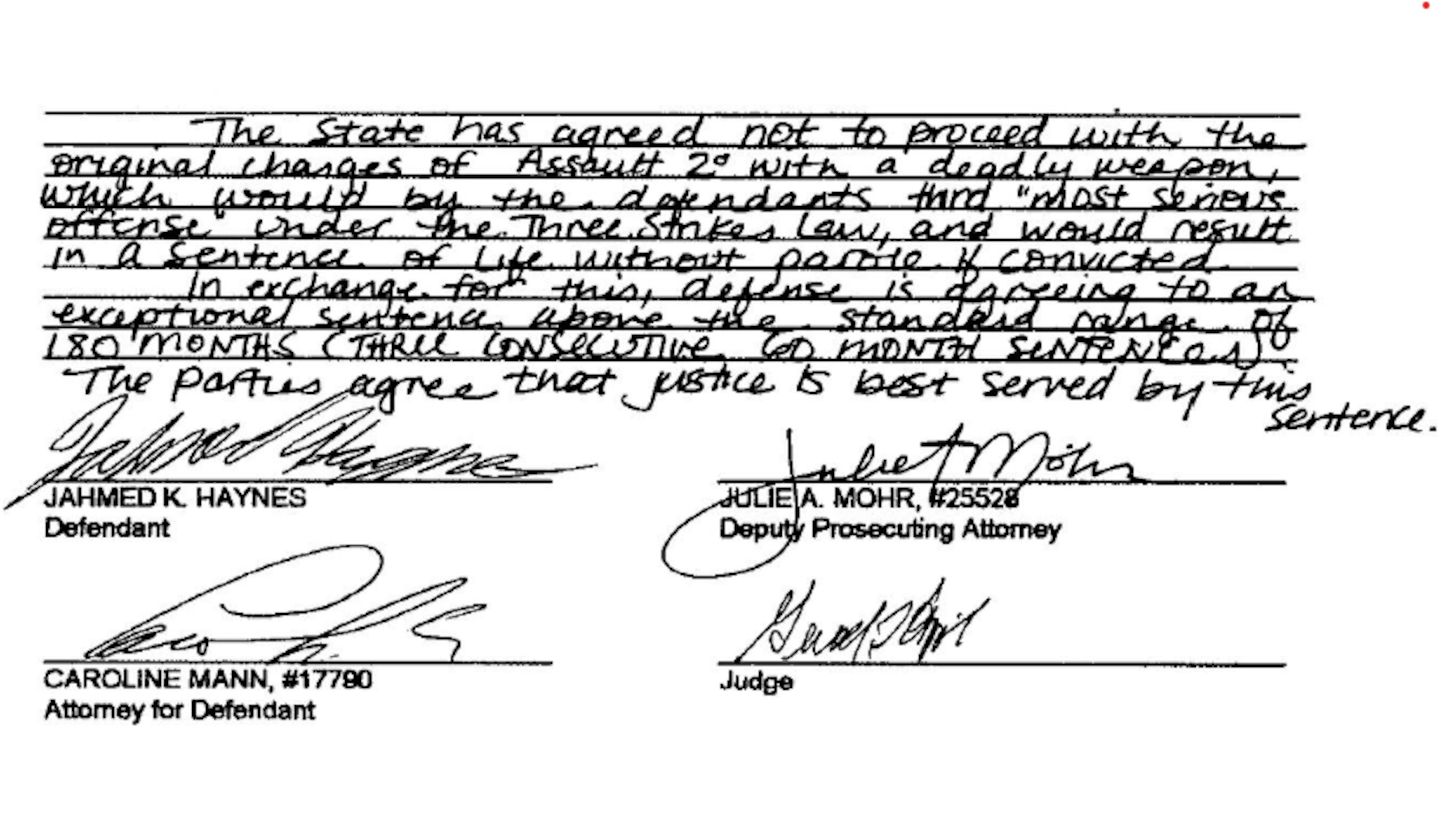 The State has agreed not to proceed with the
original charges of Assault 2° with a deadly weapon,
which would by the defendants third "most serious
offense" under the Three Strikes Law, and would result
in a sentence of life without parole if convicted.
In exchange for this, defense is agreeing to an
exceptional sentence above the standard range of
180 MONTHS (THREE CONSECUTIVE 60 MONTH SENTENCES)
The parties agree that justice is best served by this
sentence.
Jahmed Haynes
Julie A Mohr
JAHMED K. HAYNES
JULIE A. MOHR, #25528
Defendant
Deputy Prosecuting Attorney
CAROLINE MANN, #17790
Judge
Attorney for Defendant